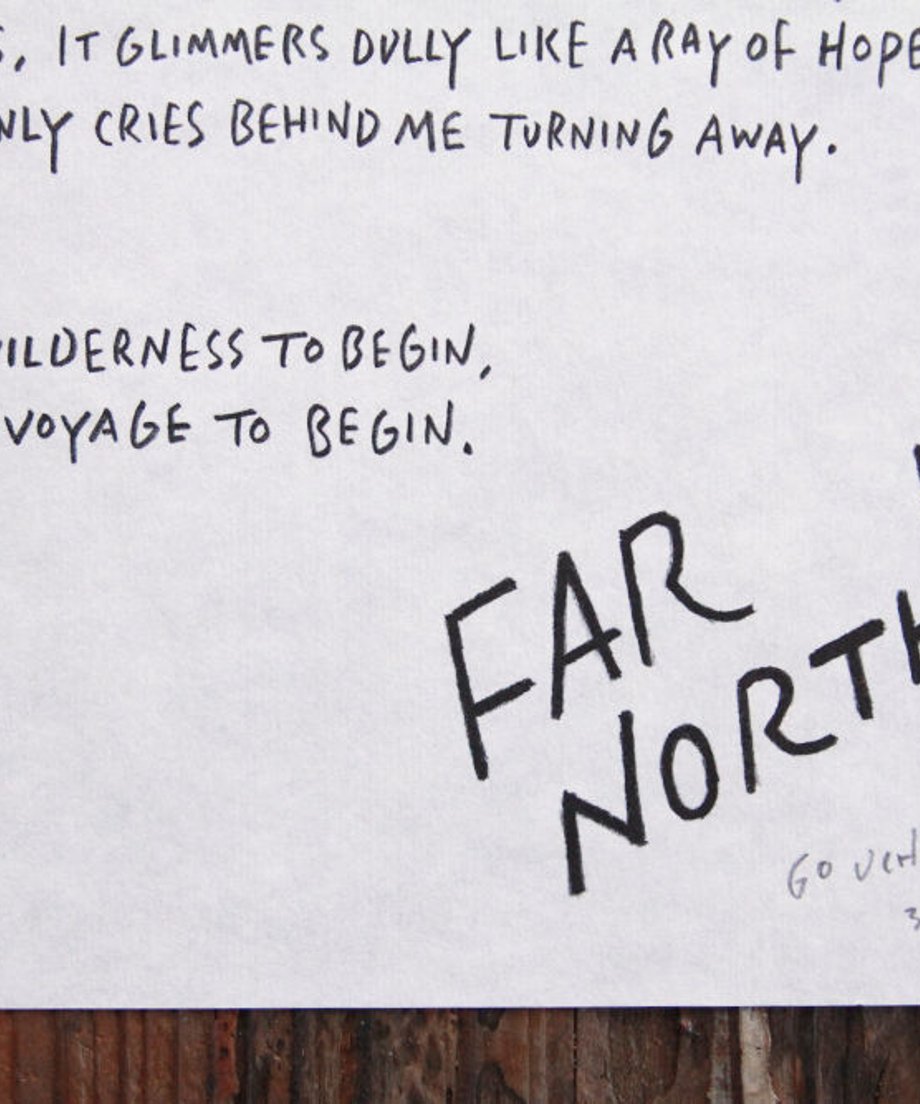 IT GLIMMERS DULLY LIKE A RAY OF HOPE
CRIES BEHIND ME TURNING AWAY.
TO BEGIN,
VOYAGE TO BEGIN.
FAR
NORTH
GO